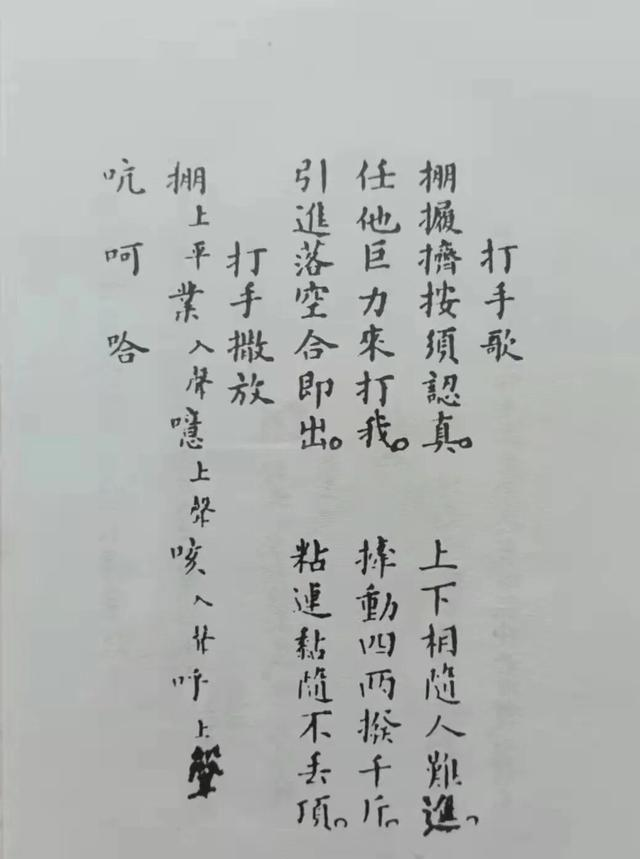 打手歌
掤擫擠按須認真。上下相隨人難進。
任他巨力來打我。捧動四兩撥千斤。
引進落空合即出。粘連黏隨不丢頂。
打手撒放
掤上平業入聲噫上聲咳入聲呼上聲
吭呵哈